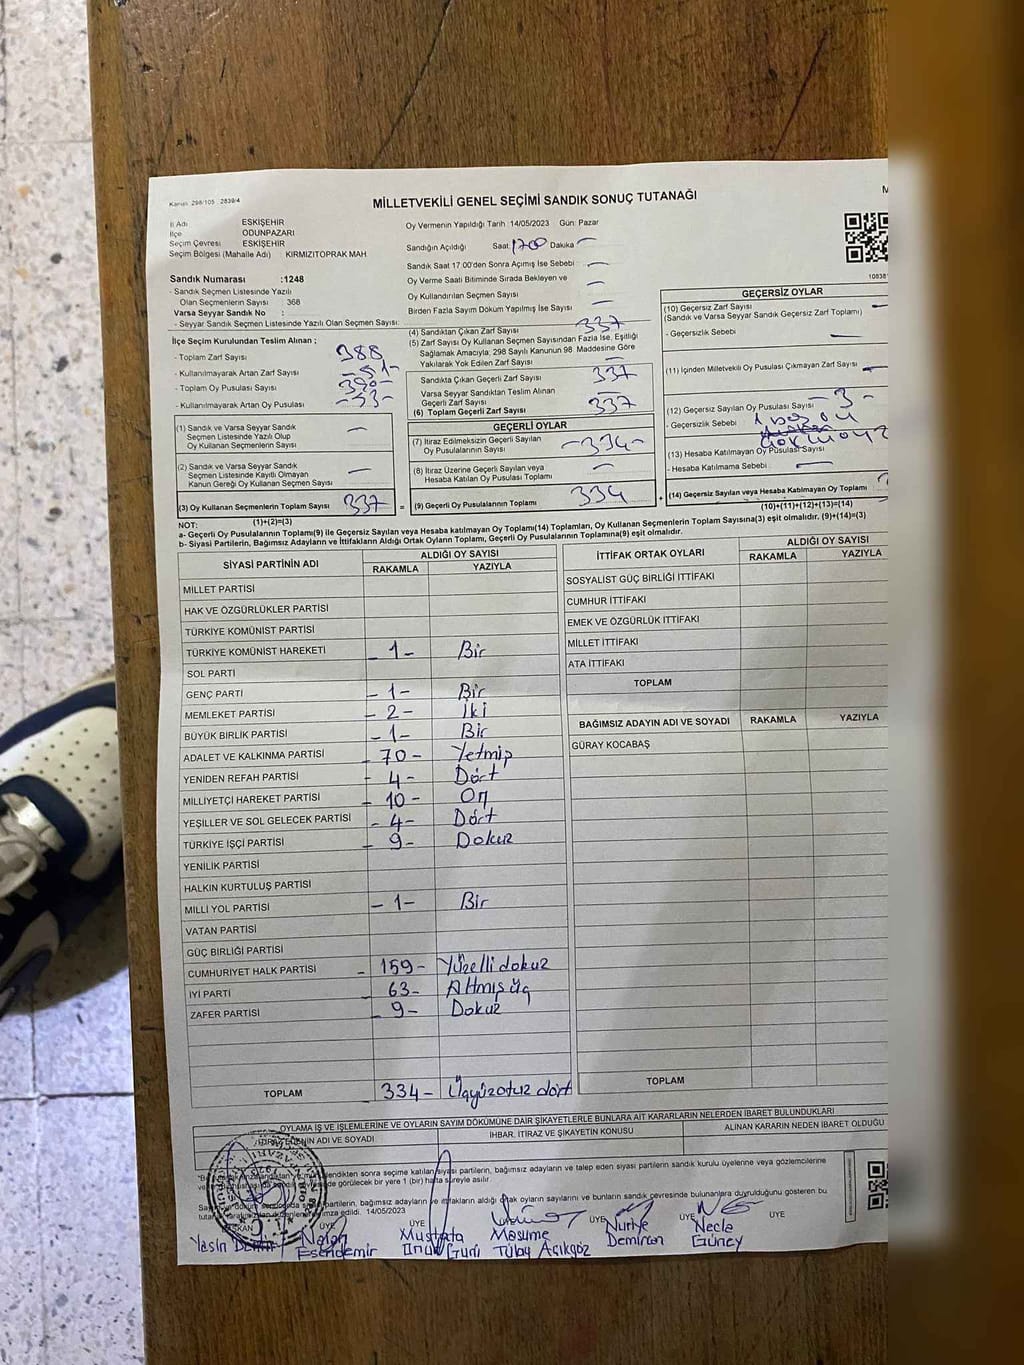 Kanun: 298/105 2839/4
MİLLETVEKİLİ GENEL SEÇİMİ SANDIK SONUÇ TUTANAĞI
İl Adı ESKİŞEHİR
İlçe ODUNPAZARI
Seçim Çevresi ESKİŞEHİR
Seçim Bölgesi (Mahalle Adı) KIRMIZITOPRAK MAH
Oy Vermenin Yapıldığı Tarih 14/05/2023 Gün: Pazar
Sandığın Açıldığı Saat 1700 Dakika —
Sandık Saat 17.00'den Sonra Açımış İse Sebebi —
Oy Verme Saati Bitiminde Sırada Bekleyen ve
Oy Kullandırılan Seçmen Sayısı —
Birden Fazla Sayım Döküm Yapılmış İse Sayısı —
Sandık Numarası :1248
- Sandık Seçmen Listesinde Yazılı
Olan Seçmenlerin Sayısı : 368
Varsa Seyyar Sandık No :
- Seyyar Sandık Seçmen Listesinde Yazılı Olan Seçmen Sayısı:
İlçe Seçim Kurulundan Teslim Alınan ;
- Toplam Zarf Sayısı 388
- Kullanılmayarak Artan Zarf Sayısı -51-
- Toplam Oy Pusulası Sayısı 390-
- Kullanılmayarak Artan Oy Pusulası -53-
(1) Sandık ve Varsa Seyyar Sandık
Seçmen Listesinde Yazılı Olup
Oy Kullanan Seçmenlerin Sayısı —
(2) Sandık ve Varsa Seyyar Sandık
Seçmen Listesinde Kayıtlı Olmayan
Kanun Gereği Oy Kullanan Seçmen Sayısı —
(3) Oy Kullanan Seçmenlerin Toplam Sayısı 337
(1)+(2)=(3)
(4) Sandıktan Çıkan Zarf Sayısı 337
(5) Zarf Sayısı Oy Kullanan Seçmen Sayısından Fazla İse, Eşitliği
Sağlamak Amacıyla, 298 Sayılı Kanunun 98. Maddesine Göre
Yakılarak Yok Edilen Zarf Sayısı —
Sandıkta Çıkan Geçerli Zarf Sayısı 337
Varsa Seyyar Sandıktan Teslim Alınan
Geçerli Zarf Sayısı —
(6) Toplam Geçerli Zarf Sayısı 337
GEÇERLİ OYLAR
(7) İtiraz Edilmeksizin Geçerli Sayılan
Oy Pusulalarının Sayısı -334-
(8) İtiraz Üzerine Geçerli Sayılan veya
Hesaba Katılan Oy Pusulası Toplamı —
= (9) Geçerli Oy Pusulalarının Toplamı 334
GEÇERSİZ OYLAR
(10) Geçersiz Zarf Sayısı
(Sandık ve Varsa Seyyar Sandık Geçersiz Zarf Toplamı) —
- Geçersizlik Sebebi —
(11) İçinden Milletvekili Oy Pusulası Çıkmayan Zarf Sayısı —
(12) Geçersiz Sayılan Oy Pusulası Sayısı -3-
- Geçersizlik Sebebi 1 boş oy
(13) Hesaba Katılmayan Oy Pusulası Sayısı
- Hesaba Katılmama Sebebi —
+ (14) Geçersiz Sayılan veya Hesaba Katılmayan Oy Toplamı
(10)+(11)+(12)+(13)=(14)
NOT:
a- Geçerli Oy Pusulalarının Toplamı(9) ile Geçersiz Sayılan veya Hesaba katılmayan Oy Toplamı(14) Toplamları, Oy Kullanan Seçmenlerin Toplam Sayısına(3) eşit olmalıdır. (9)+(14)=(3)
b- Siyasi Partilerin, Bağımsız Adayların ve İttifakların Aldığı Ortak Oyların Toplamı, Geçerli Oy Pusulalarının Toplamına(9) eşit olmalıdır.
SİYASİ PARTİNİN ADI ALDIĞI OY SAYISI
RAKAMLA YAZIYLA
MİLLET PARTİSİ
HAK VE ÖZGÜRLÜKLER PARTİSİ
TÜRKİYE KOMÜNİST PARTİSİ
TÜRKİYE KOMÜNİST HAREKETİ -1- Bir
SOL PARTİ
GENÇ PARTİ -1- Bir
MEMLEKET PARTİSİ -2- İki
BÜYÜK BİRLİK PARTİSİ -1- Bir
ADALET VE KALKINMA PARTİSİ -70- Yetmiş
YENİDEN REFAH PARTİSİ -4- Dört
MİLLİYETÇİ HAREKET PARTİSİ -10- On
YEŞİLLER VE SOL GELECEK PARTİSİ -4- Dört
TÜRKİYE İŞÇİ PARTİSİ -9- Dokuz
YENİLİK PARTİSİ
HALKIN KURTULUŞ PARTİSİ
MİLLİ YOL PARTİSİ -1- Bir
VATAN PARTİSİ
GÜÇ BİRLİĞİ PARTİSİ
CUMHURİYET HALK PARTİSİ -159- Yüzelli dokuz
İYİ PARTİ -63- Altmış üç
ZAFER PARTİSİ -9- Dokuz
TOPLAM -334- Üçyüzotuz dört
İTTİFAK ORTAK OYLARI ALDIĞI OY SAYISI
RAKAMLA YAZIYLA
SOSYALİST GÜÇ BİRLİĞİ İTTİFAKI
CUMHUR İTTİFAKI
EMEK VE ÖZGÜRLÜK İTTİFAKI
MİLLET İTTİFAKI
ATA İTTİFAKI
TOPLAM
BAĞIMSIZ ADAYIN ADI VE SOYADI RAKAMLA YAZIYLA
GÜRAY KOCABAŞ
TOPLAM
OYLAMA İŞ VE İŞLEMLERİNE VE OYLARIN SAYIM DÖKÜMÜNE DAİR ŞİKAYETLERLE BUNLARA AİT KARARLARIN NELERDEN İBARET BULUNDUKLARI
ADI VE SOYADI İHBAR, İTİRAZ VE ŞİKAYETİN KONUSU ALINAN KARARIN NEDEN İBARET OLDUĞU
sonra seçime katılan siyasi partilerin, bağımsız adayların ve talep eden siyasi partilerin sandık kurulu üyelerine veya gözlemcilerine
görülecek bir yere 1 (bir) hafta süreyle asılır.
partilerin, bağımsız adayların ve ittifakların aldığı ortak oyların sayılarını ve bunların sandık çevresinde bulunanlara duyrulduğunu gösteren bu
imza edildi. 14/05/2023
ÜYE ÜYE ÜYE ÜYE
Yasin Demir Nalan Esendemir Mustafa Masume Tülay Açıkgöz Nuriye Demircan Necla Güney